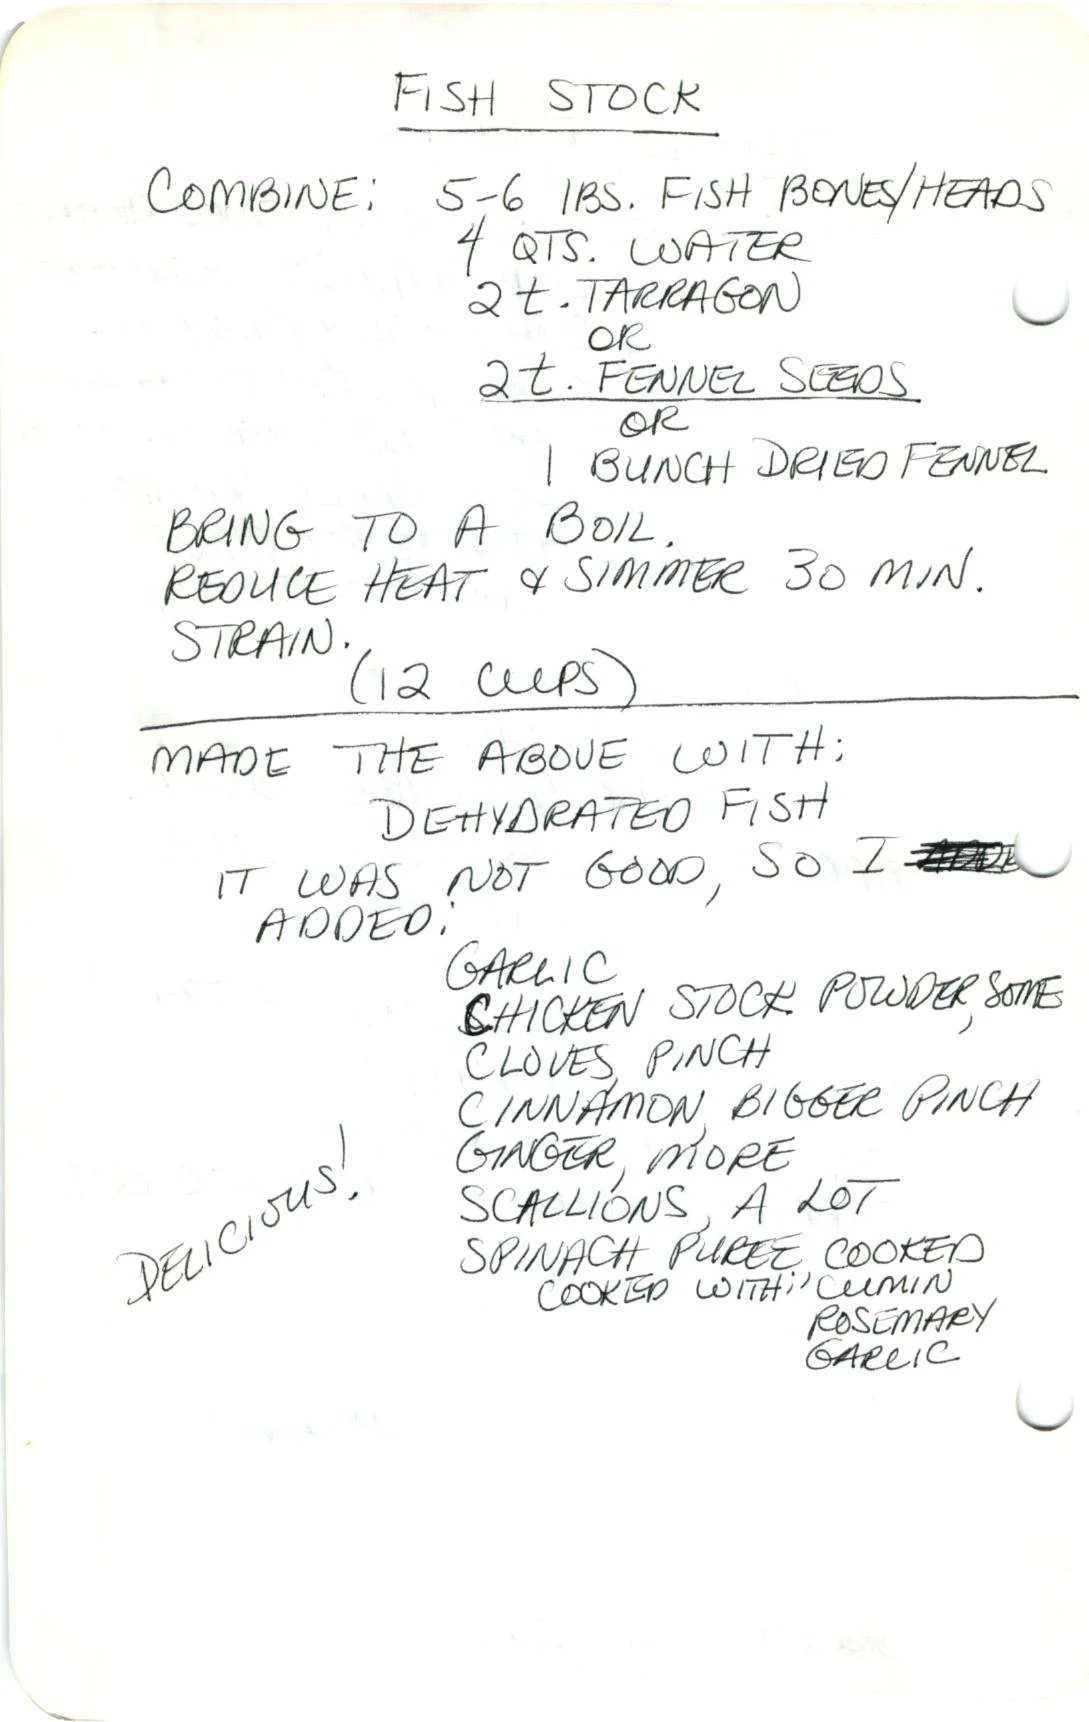 FISH STOCK
COMBINE: 5-6 lBS. FISH BONES/HEADS
4 QTS. WATER
2 t. TARRAGON
OR
2 t. FENNEL SEEDS
OR
1 BUNCH DRIED FENNEL
BRING TO A BOIL.
REDUCE HEAT & SIMMER 30 MIN.
STRAIN.
(12 CUPS)
MADE THE ABOVE WITH:
DEHYDRATED FISH
IT WAS NOT GOOD, SO I
ADDED:
GARLIC
CHICKEN STOCK POWDER, SOME
CLOVES, PINCH
CINNAMON, BIGGER PINCH
GINGER, MORE
SCALLIONS, A LOT
SPINACH PUREE, COOKED
COOKED WITH: CUMIN
ROSEMARY
GARLIC
DELICIOUS!